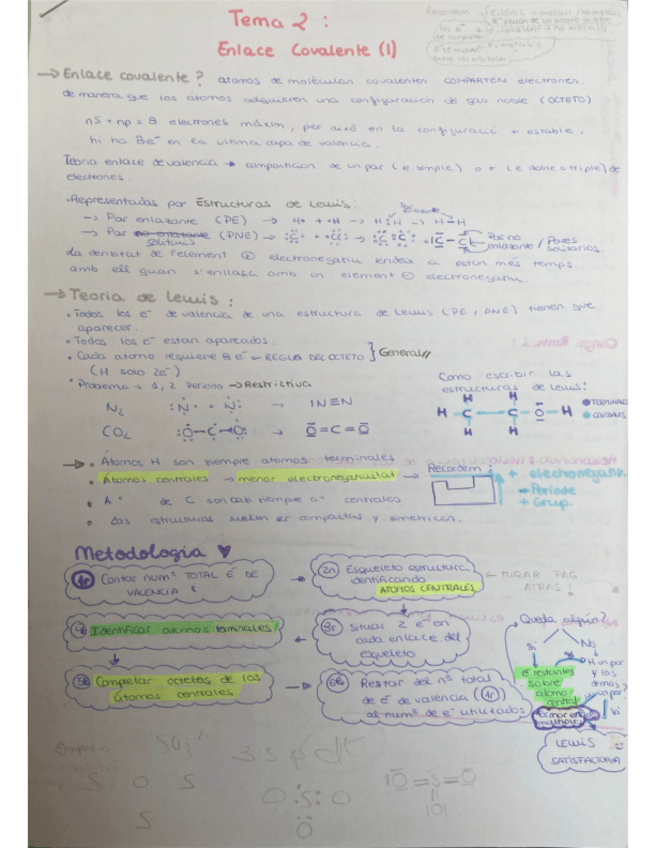 Tema 2:
Enlace Covalente (1)
→ Enlace covalente? atomos de moléculas covalentes COMPARTEN electrones.
de manera que los átomos adquieren una configuración de gas noble (OCTETO)
nS + np = 8 electrones màxim, per això en la configuració + estable,
hi ha 8e⁻ en la ultima capa de valencia.
Teoria enlace de valencia → compartición de un par (e simple) o + (e doble o triple) de
electrones.
• Representadas por Estructuras de Lewis:
→ Par enlazante (PE) → H• + •H → H:H → H-H
→ Par no enlazante (PNE) →
solitario
Par no enlazante / Pares solitarios
La densitat de l'element ⊕ electronegatiu tendeix a estar més temps
amb ell quan s'enllaça amb un element ⊖ electronegatiu.
→ Teoria de Lewis:
• Todos los e⁻ de valencia de una estructura de Lewis (PE, PNE) tienen que
aparecer.
• Todos los e⁻ estan apareados.
• Cada atomo requiere 8 e⁻ ← REGLA DEL OCTETO } General//
(H solo 2e⁻)
• Problema → 1, 2 Periodo → Restrictiva
Como escribir las
estructuras de Lewis:
N₂
CO₂ O=C=O
H H
H - C - C - O - H
H H
TERMINALES
CENTRALES
→ • Átomos H son siempre atomos terminales
• Átomos centrales → menor electronegativitat → Recordem:
+ electronegativ.
Periode
+ Grup.
• Aº de C son casi siempre aº centrales
• Las estructuras suelen ser compactas y simetricas.
Metodología ♥
1r Contar numº TOTAL E⁻ DE
VALENCIA
2n Esqueleto estructura
identificando
ATOMOS CENTRALES
← MIRAR PAG
ATRAS!
4t Identificar atomos terminales
3r Situar 2 e⁻ en
cada enlace del
esqueleto
5è Completar octetos de los
átomos centrales
6è Restar del nº total
de e⁻ de valencia (1r)
al numº de e⁻ utilizados
Queda algún?
Si No
e⁻ restantes
sobre
atomo
central
LEWIS
SATISFACTORIA
3 s p d
S O S
S
O S O
O